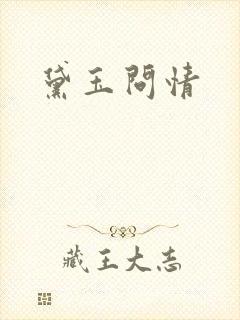 黛玉問情
藏王大志